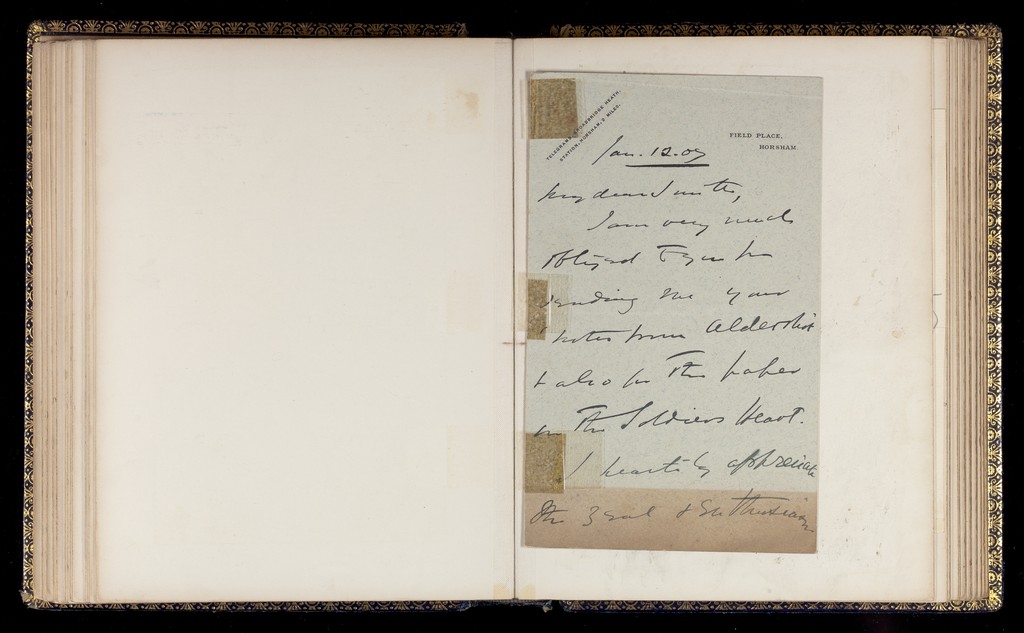 TELEGRAMS, BROADBRIDGE HEATH.
STATION, HORSHAM, 2 MILES.
FIELD PLACE,
HORSHAM.
Jan. 12. 07
My dear Smith,
I am very much
obliged to you for
sending me your
notes from Aldershot
& also for the paper
on the Soldiers Heart.
I heartily appreciate
the zeal & enthusiasm